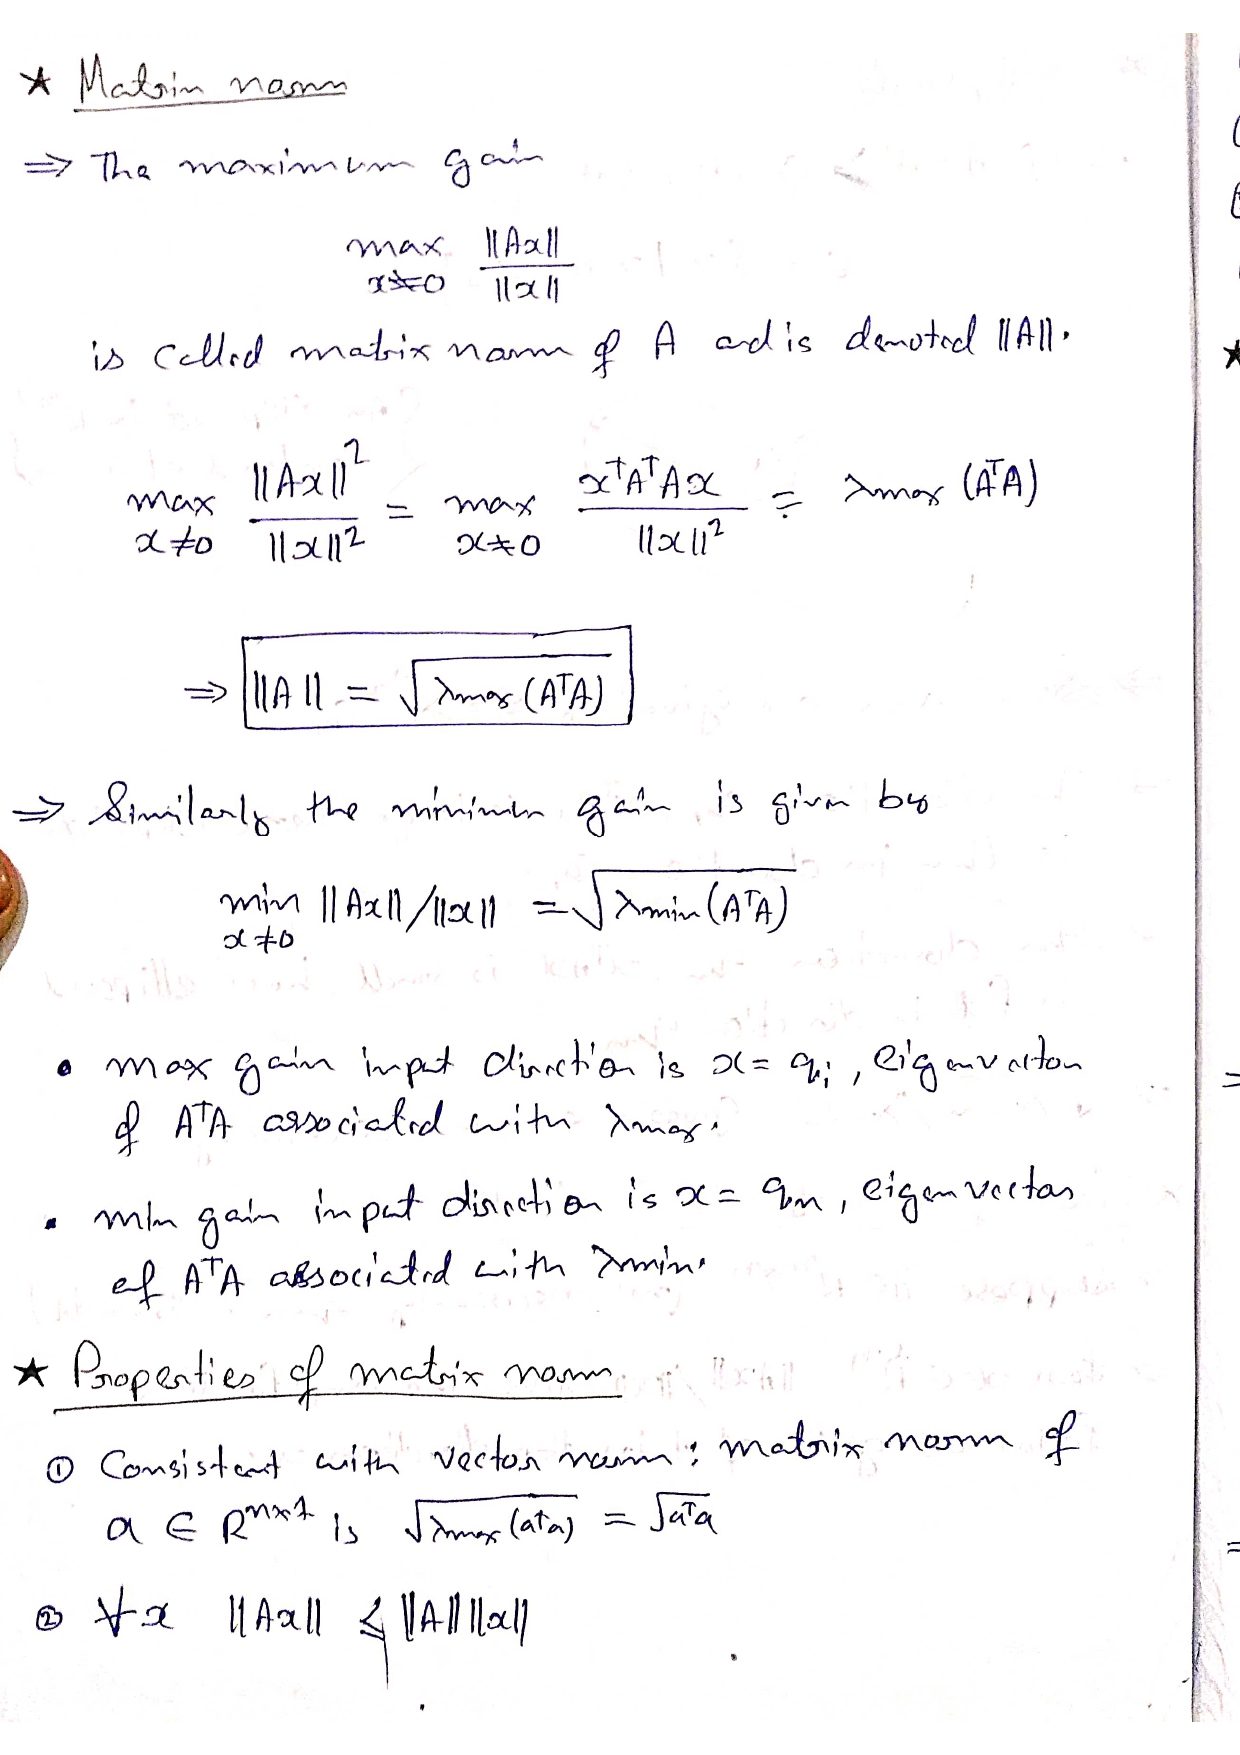 ★ Matrix norm
⇒ The maximum gain
max ||Ax||
x≠0 ||x||
is called matrix norm of A and is denoted ||A||.
max ||Ax||² = max xᵀAᵀAx = λmax (AᵀA)
x≠0 ||x||² x≠0 ||x||²
⇒ ||A|| = √λmax (AᵀA)
⇒ Similarly the minimum gain is given by
min ||Ax||/||x|| = √λmin (AᵀA)
x≠0
• max gain input direction is x = q₁, eigenvector
of AᵀA associated with λmax.
• min gain input direction is x = qn, eigenvector
of AᵀA associated with λmin.
★ Properties of matrix norm
① Consistent with vector norm: matrix norm of
a ∈ Rⁿˣ¹ is √λmax (aᵀa) = √aᵀa
② ∀x ||Ax|| ≤ ||A|| ||x||